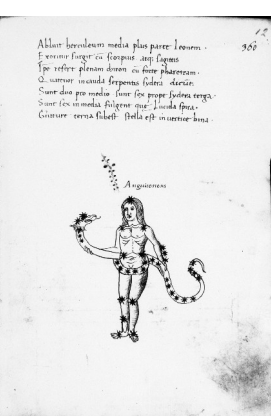 12
360
Abluit herculeum media plus parte Leonem.
Exoritur surgit cũ scorpius atq; sagitta
Ipse refert plenam dorsũ cũ forte pharetram.
Quattuor in cauda serpentis sydera dicunt
Sunt duo pro medio sunt sex prope sydera terga.
Sunt sex in media fulgent que lucida spira.
Gutture terna subest stella est in vertice bina.
Anguitenens